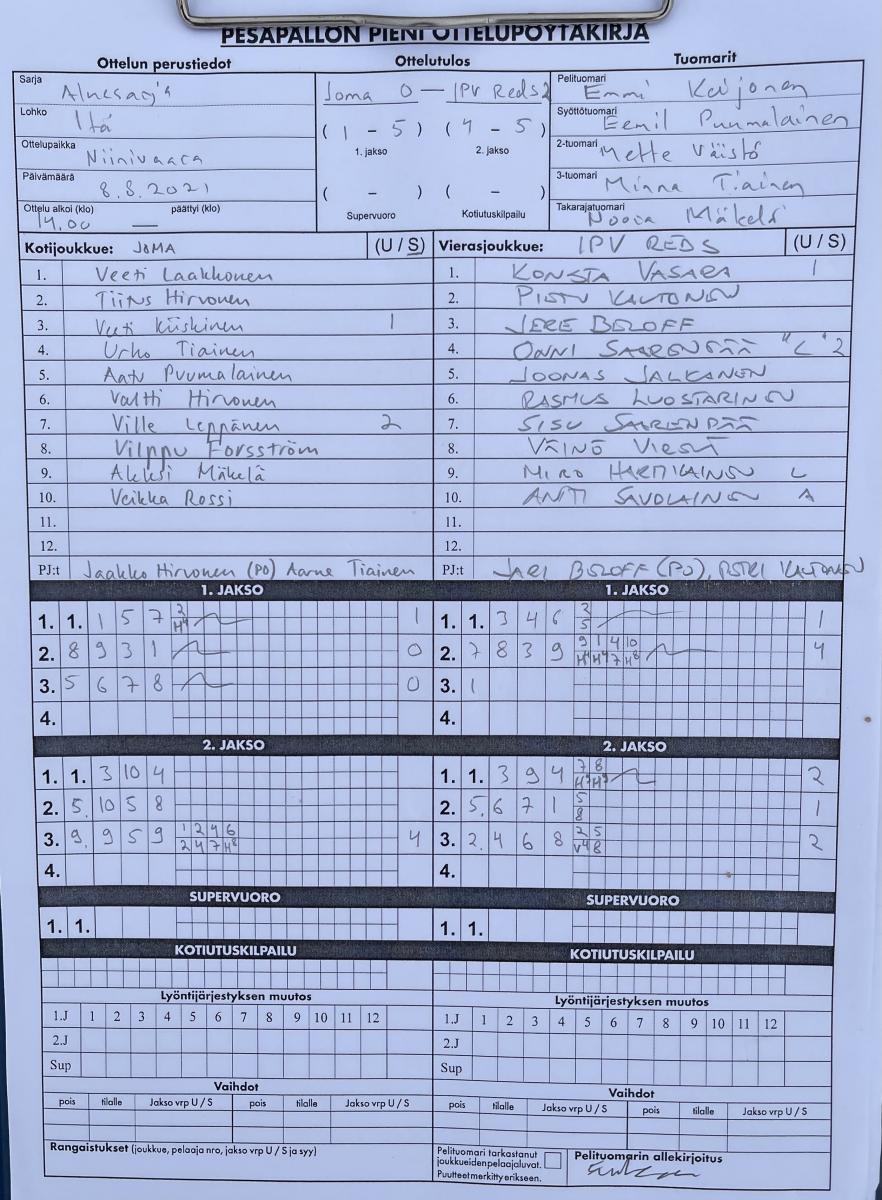 PESÄPALLON PIENI OTTELUPÖYTÄKIRJA
Ottelun perustiedot Ottelutulos Tuomarit
Sarja
Lohko Itä
Ottelupaikka Niinivaara
Päivämäärä 8.8.2021
Ottelu alkoi (klo) 14.00 päättyi (klo) —
Joma 0 — IPV Reds 2
( 1 - 5 ) ( 4 - 5 )
1. jakso 2. jakso
( - ) ( - )
Supervuoro Kotiutuskilpailu
Pelituomari Emmi Keijonen
Syöttötuomari Eemil Puumalainen
2-tuomari Mette Väistö
3-tuomari Minna Tiainen
Takarajatuomari Noora Mäkelä
Kotijoukkue: JOMA (U / S)
1. Veeti Laakkonen
2. Tiitus Hirvonen
3. Veeti Kiiskinen 1
4. Urho Tiainen
5. Aatu Puumalainen
6. Valtti Hirvonen
7. Ville Leppänen 2
8. Vilppu Forsström
9. Akksi Mäkelä
10. Veikka Rossi
11.
12.
PJ:t Jaakko Hirvonen (PO) Aarne Tiainen
Vierasjoukkue: IPV REDS (U / S)
1. KONSTA VASARA 1
2. KAUTONEN
3. JERE BELOFF
4. ONNI SAARENPÄÄ "L" 2
5. JOONAS JALKANEN
6. RASMUS LUOSTARINEN
7. SISU SAARENPÄÄ
8. VÄINÖ
9. MIRO HARTIKAINEN L
10. ANTI SAVOLAINEN A
11.
12.
PJ:t JARI BELOFF (PO), KAUTONEN
1. JAKSO
1. 1. 1 5 7 2 1
H4
2. 8 9 3 1 0
3. 5 6 7 8 0
4.
1. JAKSO
1. 1. 3 4 6 2 1
5
2. 7 8 3 9 9 1 4 10 4
H4 H4 7 H8
3. 1
4.
2. JAKSO
1. 1. 3 10 4
2. 5. 10 5 8
3. 9. 9 5 9 1 2 4 6 4
2 4 7 H8
4.
2. JAKSO
1. 1. 3 9 4 7 8 2
H3 H3
2. 5. 6 7 1 5 1
8
3. 2. 4 6 8 2 5 2
V4 8
4.
SUPERVUORO
1. 1.
SUPERVUORO
1. 1.
KOTIUTUSKILPAILU KOTIUTUSKILPAILU
Lyöntijärjestyksen muutos
1.J 1 2 3 4 5 6 7 8 9 10 11 12
2.J
Sup
Lyöntijärjestyksen muutos
1.J 1 2 3 4 5 6 7 8 9 10 11 12
2.J
Sup
Vaihdot
pois tilalle Jakso vrp U / S pois tilalle Jakso vrp U / S
Vaihdot
pois tilalle Jakso vrp U / S pois tilalle Jakso vrp U / S
Rangaistukset (joukkue, pelaaja nro, jakso vrp U / S ja syy)
Pelituomari tarkastanut
joukkueiden pelaajaluvat.
Puutteet merkitty erikseen.
Pelituomarin allekirjoitus